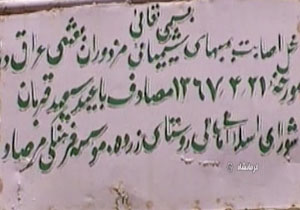 بسمه تعالی
محل اصابت بمبهای شیمیایی مزدوران بعثی عراق در
مورخه ۱۳۶۷/۴/۳۱ مصادف با عید سعید قربان
شورای اسلامی اهالی روستای زرده، موسسه فرهنگی مرصاد
کرمانشاه